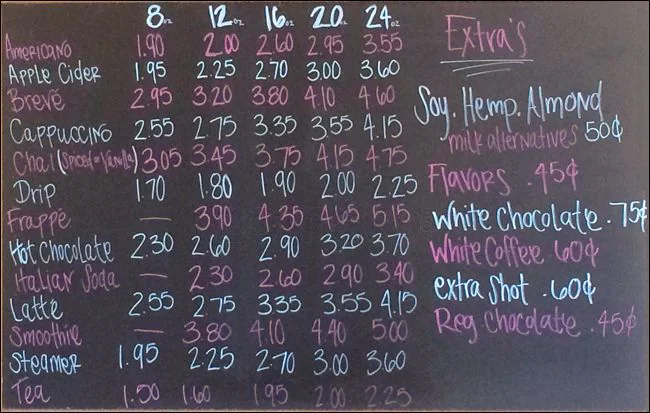 8oz 12oz 16oz 20oz 24oz
Americano 1.90 2.00 2.60 2.95 3.55
Apple Cider 1.95 2.25 2.70 3.00 3.60
Brevé 2.95 3.20 3.80 4.10 4.60
Cappuccino 2.55 2.75 3.35 3.55 4.15
Chai (Spiced or Vanilla) 3.05 3.45 3.75 4.15 4.75
Drip 1.70 1.80 1.90 2.00 2.25
Frappé — 3.90 4.35 4.65 5.15
Hot Chocolate 2.30 2.60 2.90 3.20 3.70
Italian Soda — 2.30 2.60 2.90 3.40
Latté 2.55 2.75 3.35 3.55 4.15
Smoothie — 3.80 4.10 4.40 5.00
Steamer 1.95 2.25 2.70 3.00 3.60
Tea 1.50 1.60 1.95 2.00 2.25
Extra's
Soy. Hemp. Almond
milk alternatives 50¢
Flavors .45¢
White Chocolate .75¢
White Coffee .60¢
extra Shot .60¢
Reg Chocolate .45¢